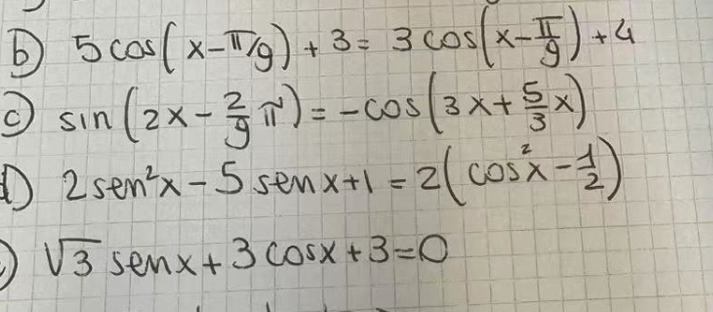 b) 5 cos(x - π/9) + 3 = 3 cos(x - π/9) + 4
c) sin(2x - 2/9 π) = -cos(3x + 5/3 x)
d) 2 sen²x - 5 sen x + 1 = 2(cos²x - 1/2)
) √3 sen x + 3 cos x + 3 = 0